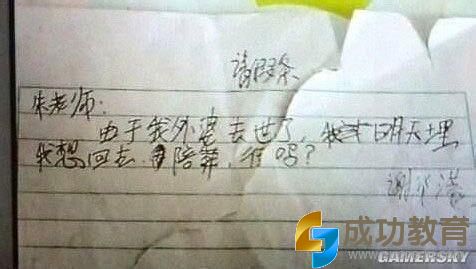 请假条
朱老师:
由于我外婆去世了,我才明天埋
我想回去陪葬,行吗?
成功教育
GAMERSKY